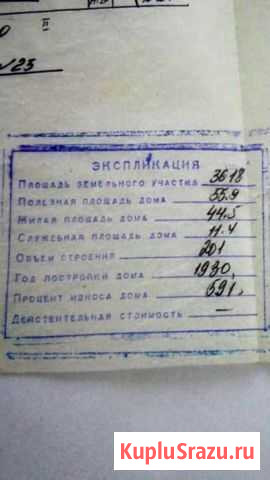 №23
ЭКСПЛИКАЦИЯ
Площадь земельного участка 3618
Полезная площадь дома 55.9
Жилая площадь дома 44.5
Служебная площадь дома 11.4
Объем строения 201
Год постройки дома 1930,
Процент износа дома
Действительная стоимость —
KupluSrazu.ru